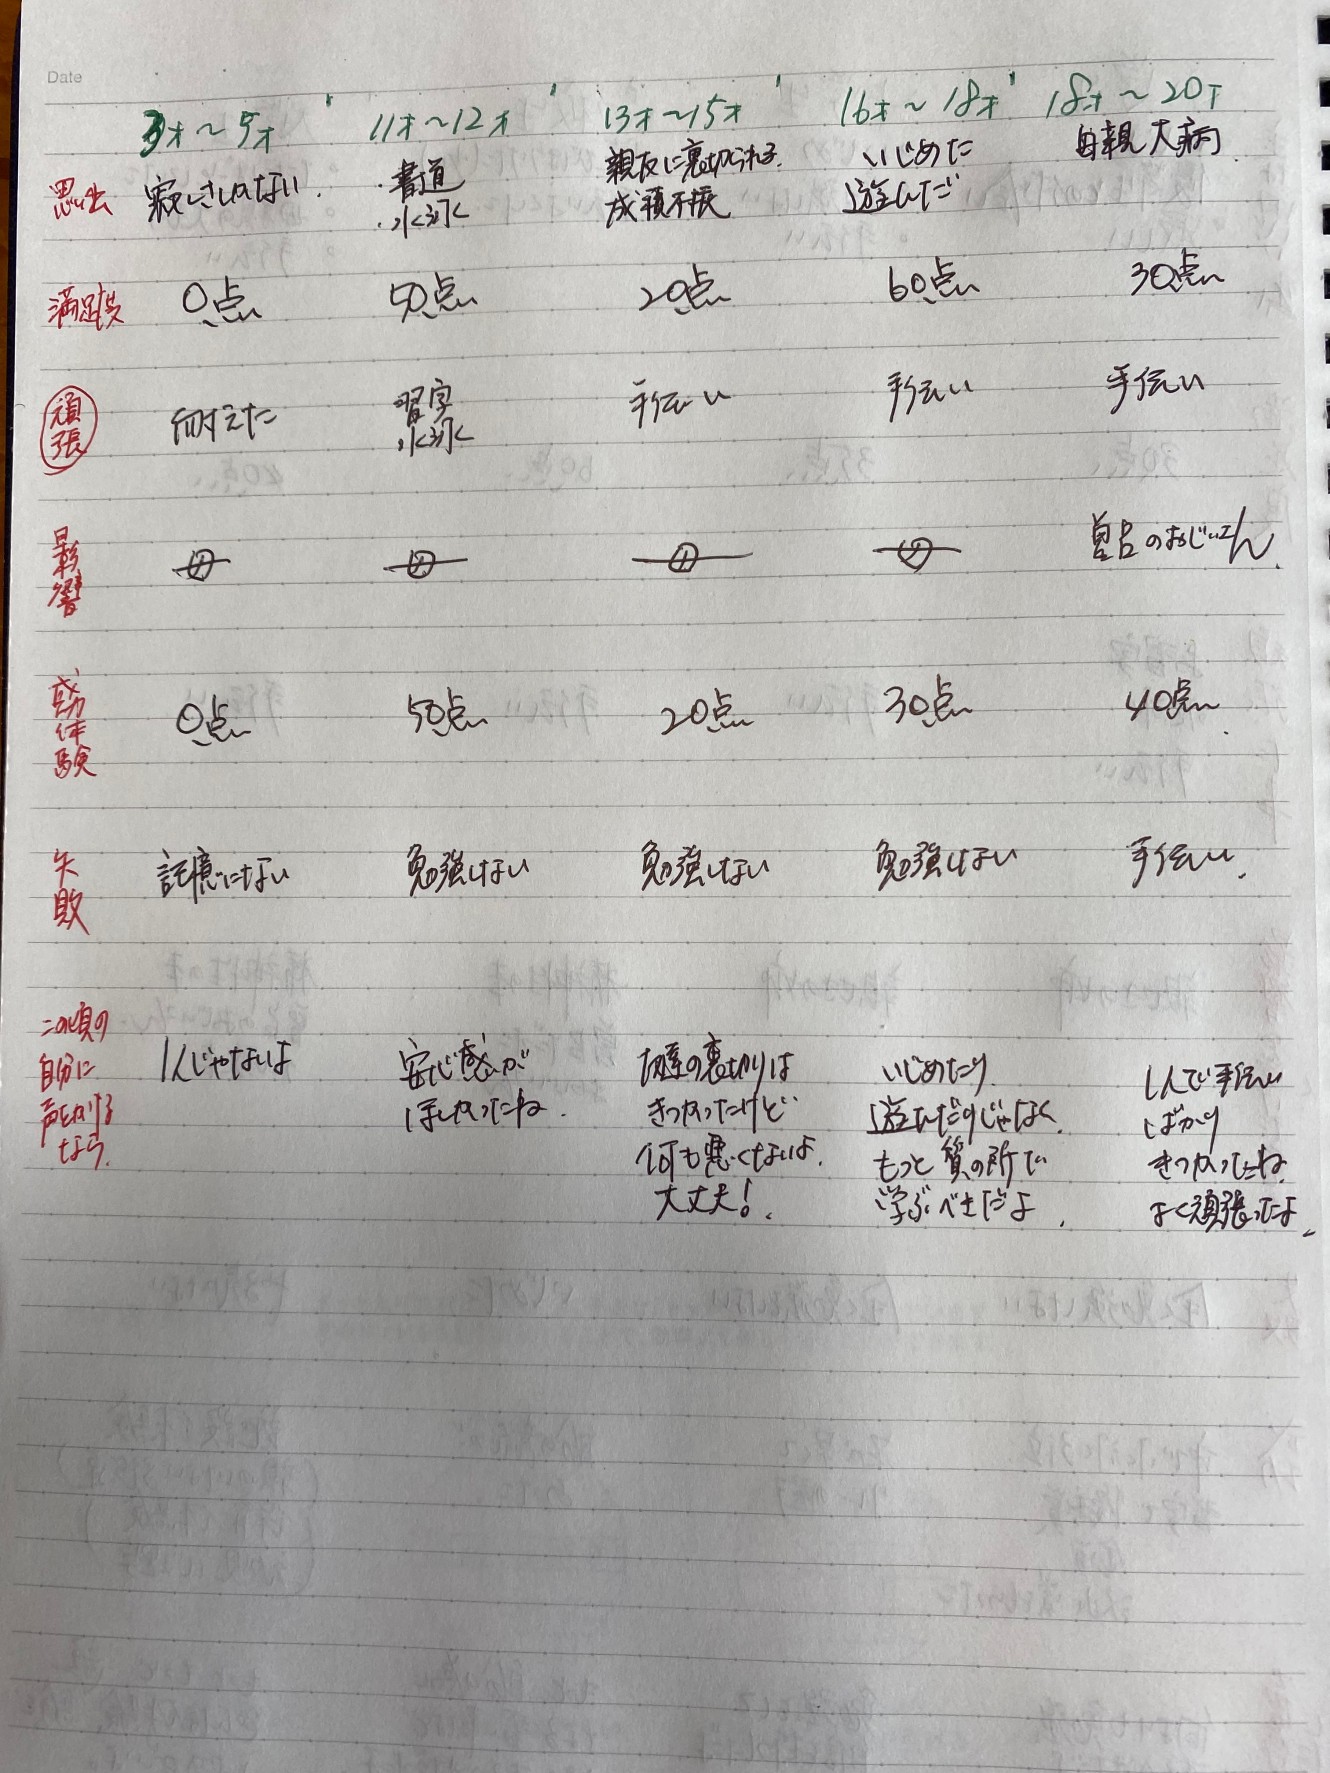 Date
3才～5才 11才～12才 13才～15才 16才～18才 18才～20才
思い出 寂しさしかない. ・書道 親友に裏切られる. いじめた 母親 大病.
・水泳 成績不振 遊んだ
満足度 0点 50点 20点 60点 30点
頑張 耐えた 習字 手伝い 手伝い 手伝い
水泳
影響 のおじいさん.
感動体験 0点 50点 20点 30点 40点.
失敗 記憶にない 勉強しない 勉強しない 勉強しない 手伝い.
この頃の 1人じゃないよ 安心感が の裏切りは いじめたり 1人で手伝い
自分に ほしかったね. きつかったけど 遊んだりじゃなく ばかり
声をかける 何も悪くないよ. もっと質の所で きつかったね.
なら. 大丈夫！. 学ぶべきだよ. よく頑張ったよ.